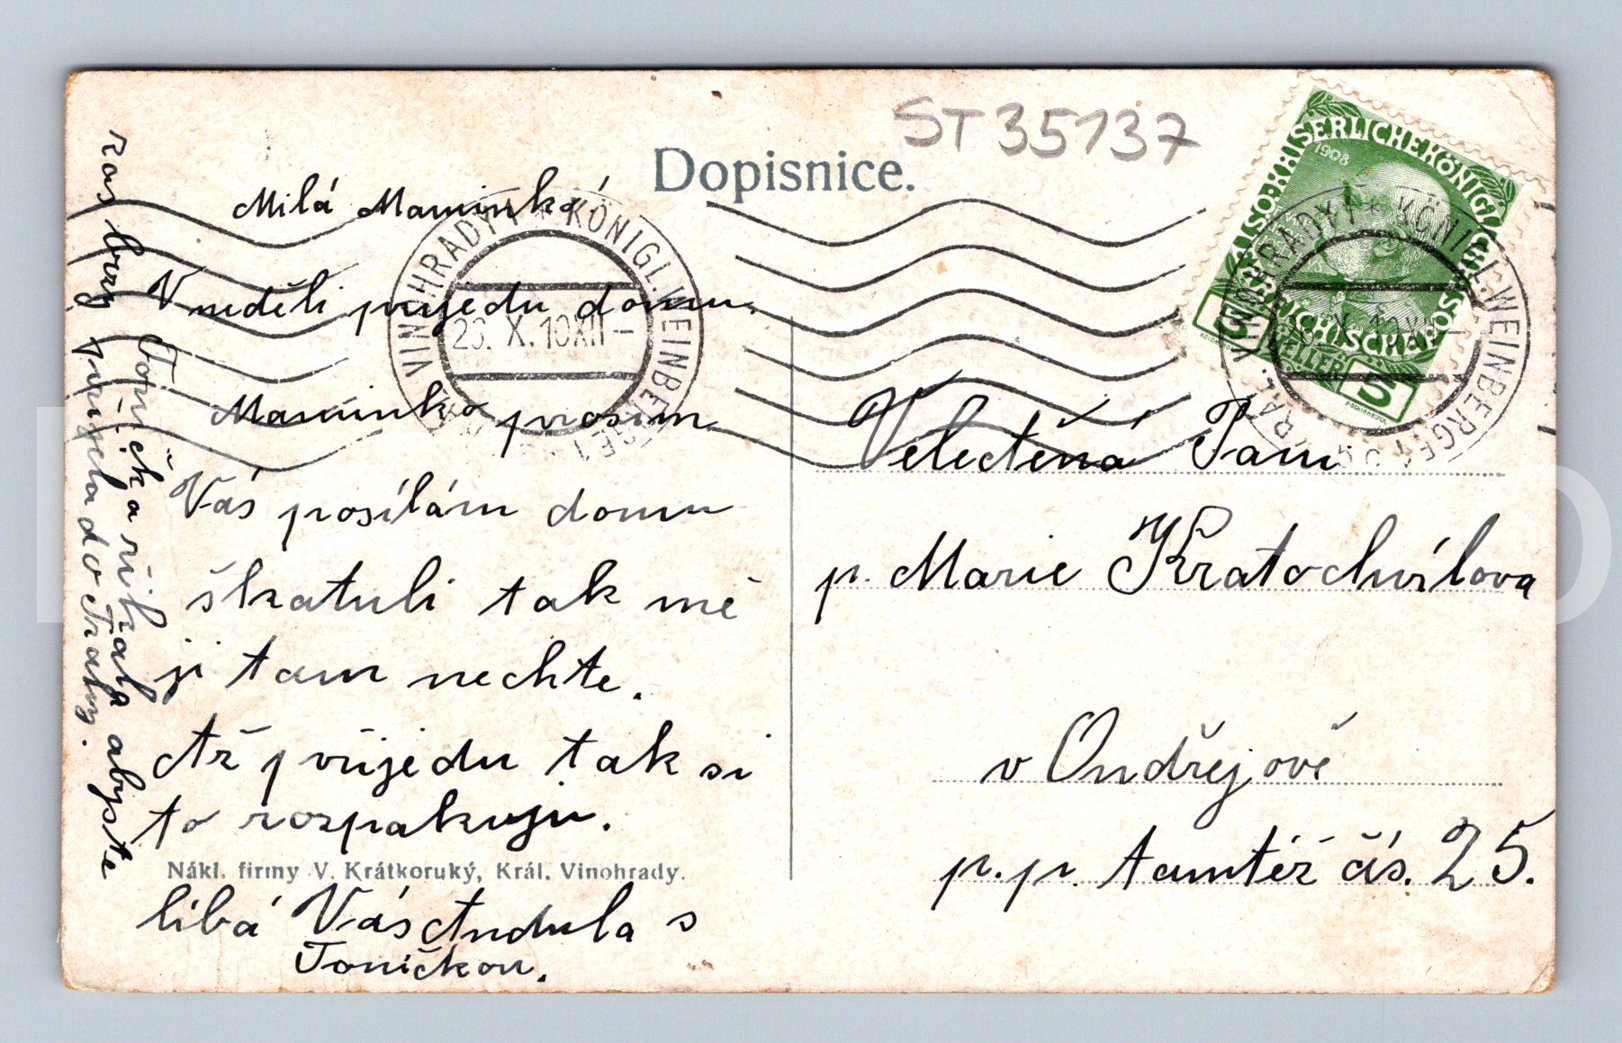 ST35137
Dopisnice.
Milá Maminko
V neděli prijedu domu.
Maminko prosim
Vás posílám domu
škatuli tak mě
ji tam nechte.
Až prijedu tak si
to rozpakuju.
Nákl. firmy V. Krátkoruký, Král. Vinohrady.
líbá Vás Andula s
Toničkou.
Tonička říkala abyste
zas brzy přijela do Prahy.
VINOHRADY 1 * KÖNIGL. WEINBERGE 1
23. X. 10 XII –
KAISERLICHE KÖNIGLICHE ÖSTERREICHISCHE POST
1908
5 HELLER 5
VINOHRADY 1 * KÖNIGL. WEINBERGE 1
Veletěná Paní
p. Marie Kratochvílova
v Ondřejově
p. p. tamtéž čís. 25.